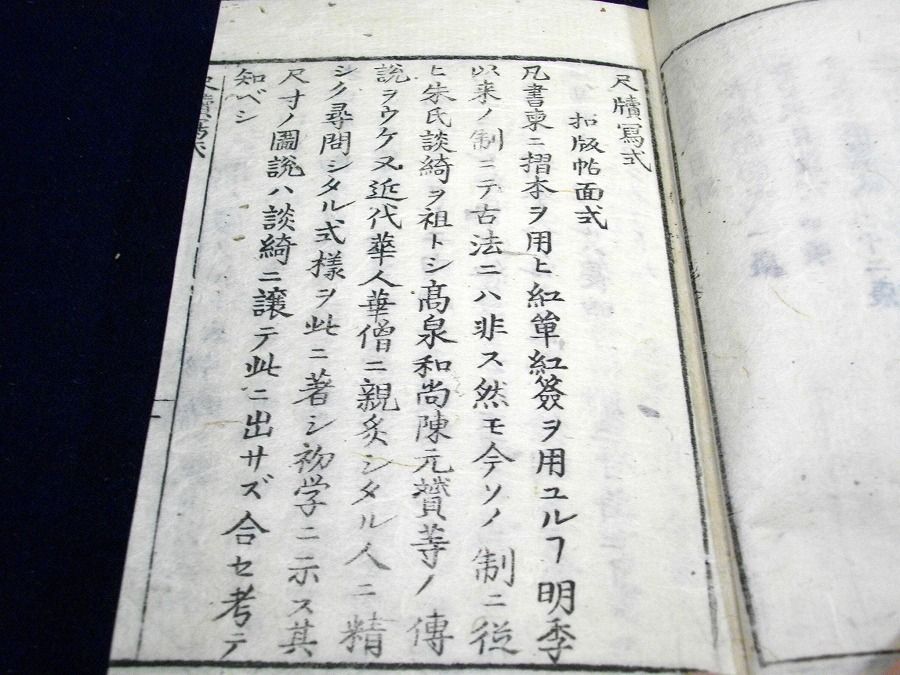 尺牘寫式
扣版帖面式
凡書柬ニ摺本ヲ用ヒ紅箪紅簽ヲ用ユルヿ明季
以来ノ制ニテ古法ニハ非ス然モ今ソノ制ニ従
ヒ朱氏談綺ヲ祖トシ髙泉和尚陳元贇等ノ傳
説ヲウケ又近代華人華僧ニ親炙シタル人ニ精
シク尋問シタル式様ヲ此ニ著シ初学ニ示ス其
尺寸ノ圖説ハ談綺ニ譲テ此ニ出サズ合セ考テ
知ベシ
尺牘寫式